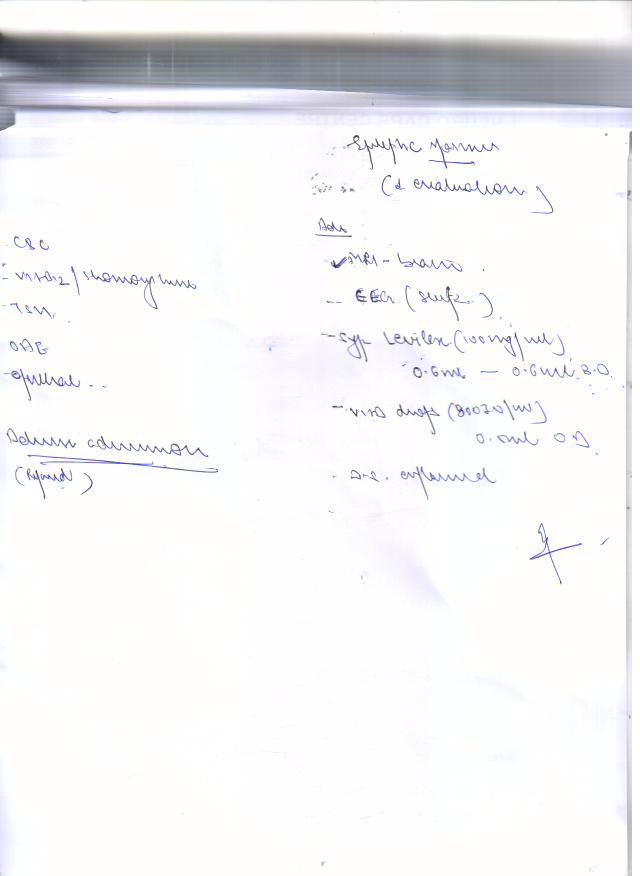 CBC
- Vit B12 / Homocysteine
- TSH
Advise admission
(Refused)
Epileptic spasms
(d evaluation)
Adv
✓ MRI - brain.
-- EEG (sleep).
- Syp Levilex (100mg/ml)
0.6ml — 0.6ml B.D.
- Vit D drops (800IU/ml)
0.5ml O.D.
- D.S. explained